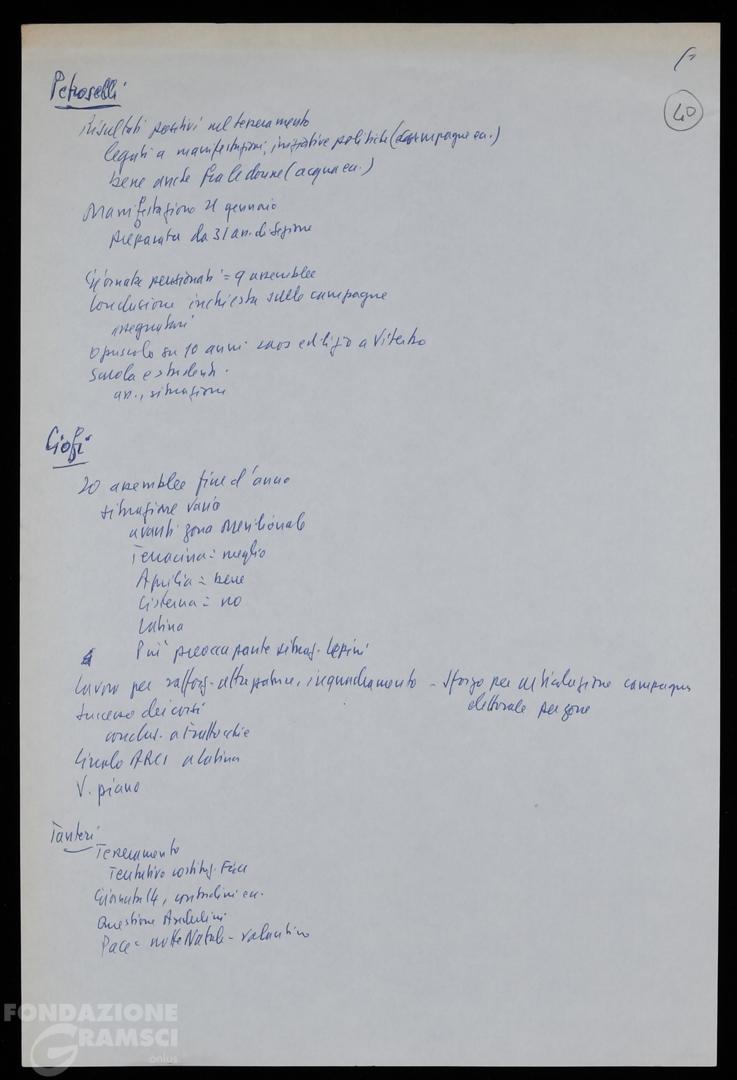 40
Petroselli
Risultati positivi nel tesseramento
legati a manifestazioni, iniziative politiche (campagne ecc.)
bene anche fra le donne (acqua ecc.)
Manifestazione 21 gennaio
preparata da 31 ass. di sezione
Giornata pensionati = 9 assemblee
Conclusione inchiesta sulle campagne
assegnatari
Opuscolo su 10 anni caos edilizio a Viterbo
Scuola e studenti.
ass., situazione
Ciofi
20 assemblee fine d'anno
situazione varia
avanti zona meridionale
Terracina = meglio
Aprilia = bene
Cisterna = no
Latina
Più preoccupante situaz. Lepini
Lavoro per rafforz. attrezzature, inquadramento - Sforzo per articolazione campagna
elettorale per zone
Successo dei corsi
conclus. a Frattocchie
Circolo ARCI a Latina
V. piano
Tesseramento
Tentativo costituz.
Giornata 14, contadini ecc.
Questione
Pace = notte Natale -
FONDAZIONE
GRAMSCI
onlus